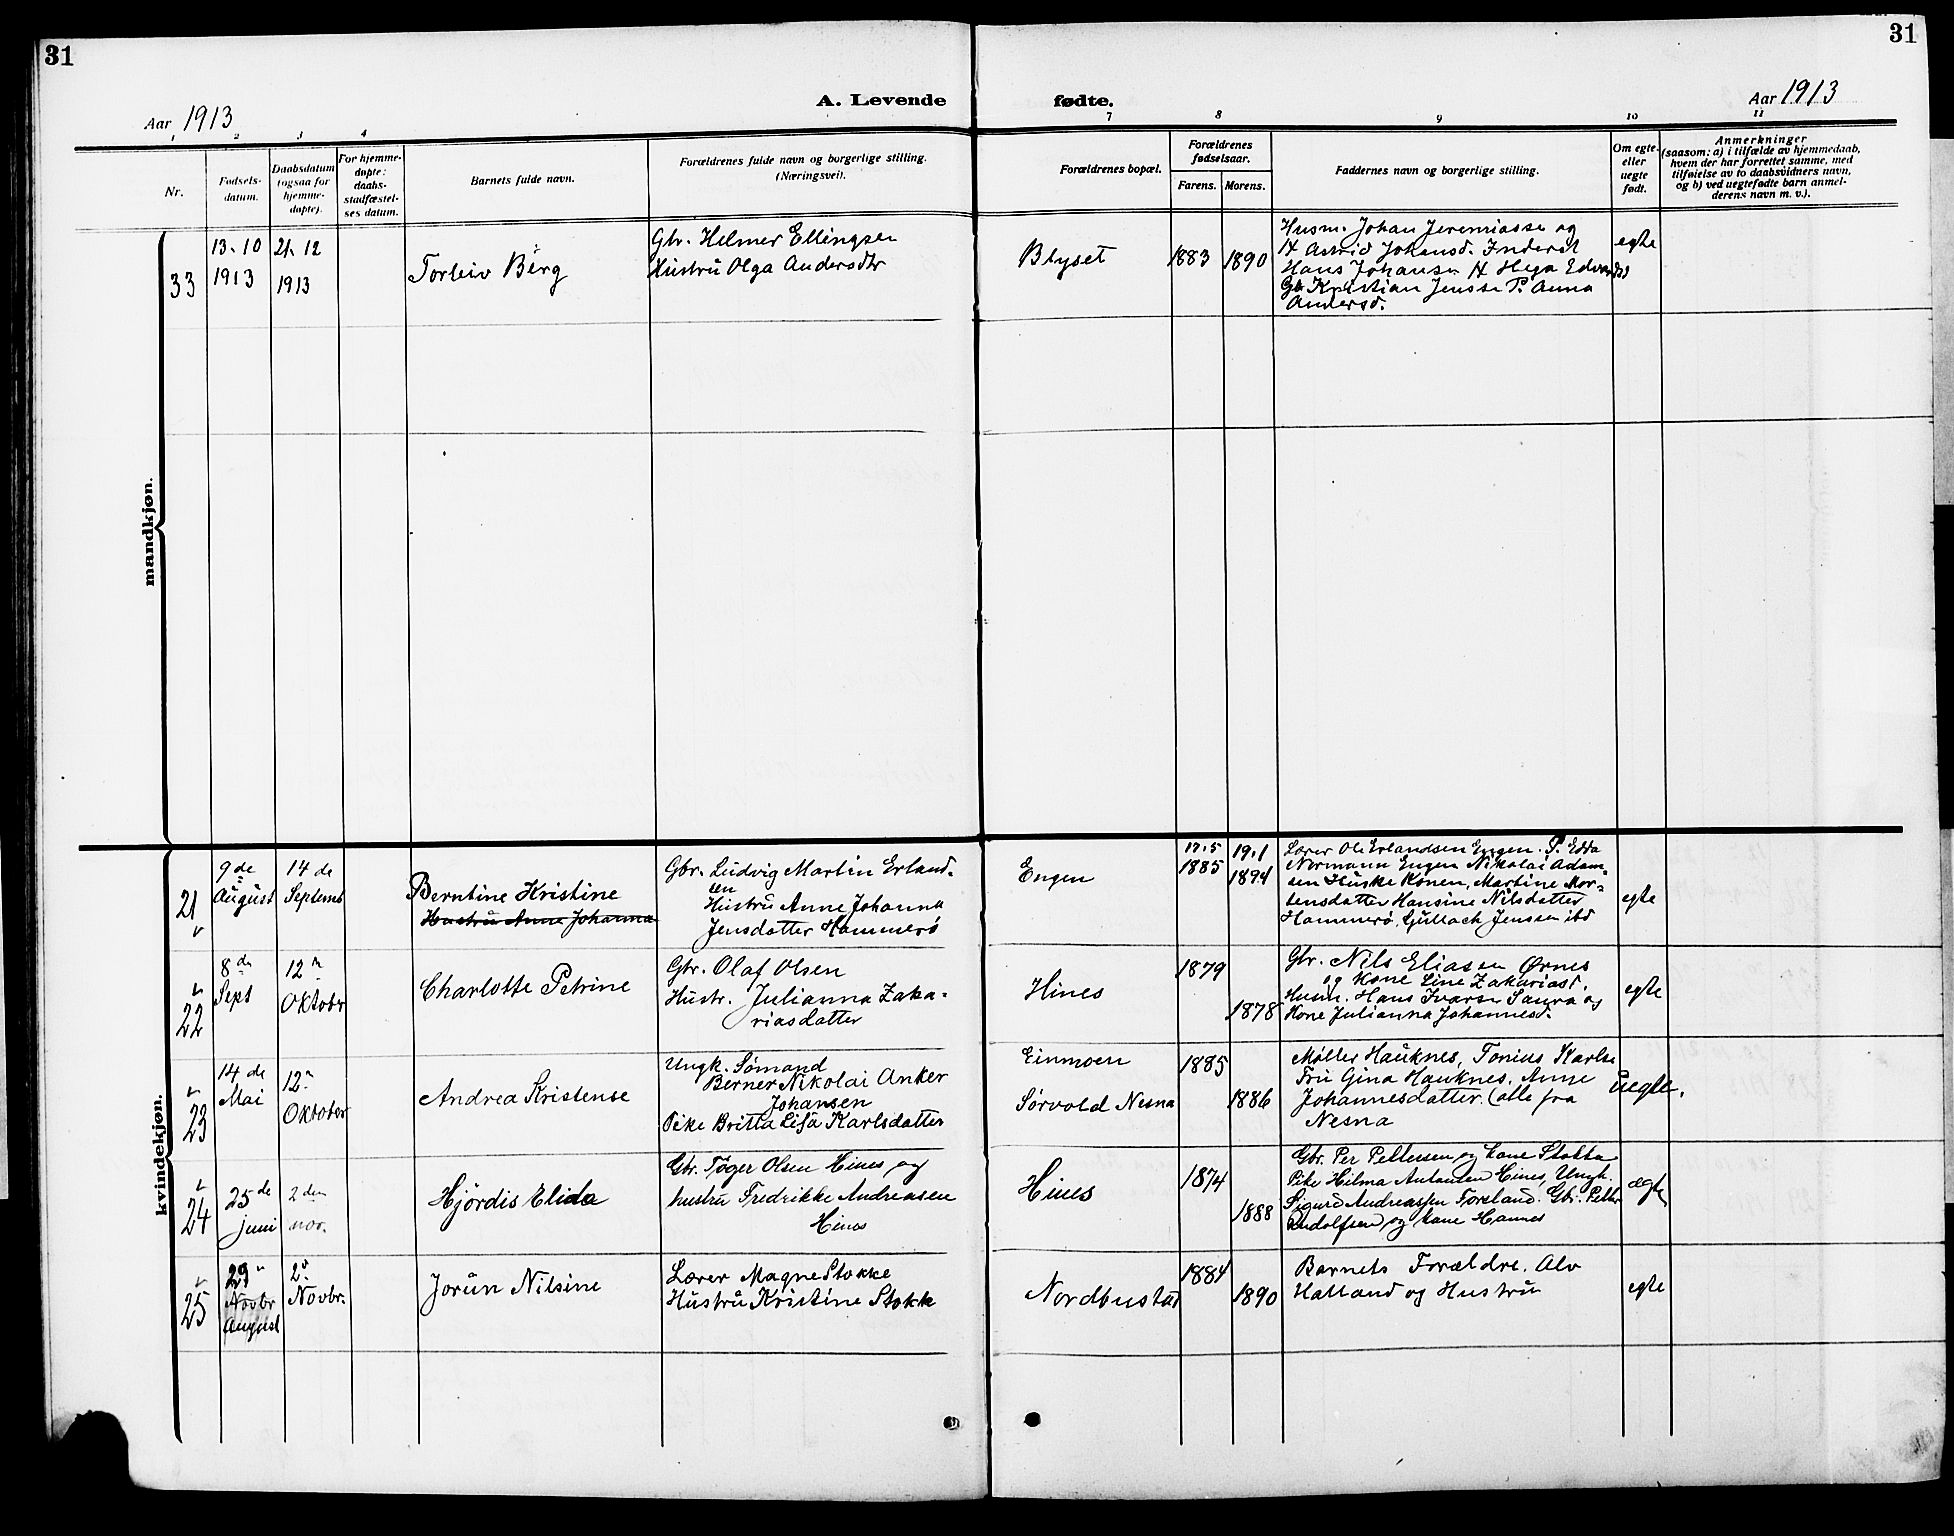 31
31
Aar 1913
A. Levende fødte.
Aar 1913
1 2 3 4 7 8 9 10 11
Nr.
Fødsels-
datum.
Daabsdatum
(ogsaa for
hjemme-
døpte).
For hjemme-
døpte:
daabs-
stadfæstel-
ses datum.
Barnets fulde navn.
Forældrenes fulde navn og borgerlige stilling.
(Næringsvei).
Forældrenes bopæl.
Forældrenes
fødselsaar.
Farens. Morens.
Faddernes navn og borgerlige stilling.
Om egte-
eller
uegte
født.
Anmerkninger
(saasom: a) i tilfælde av hjemmedaab,
hvem der har forrettet samme, med
tilføielse av to daabsvidners navn,
og b) ved uegtefødte barn anmel-
derens navn m. v.).
mandkjøn.
33
13. 10
1913
21. 12
1913
Torleiv Berg
Gbr. Helmer Ellingsen
Hustru Olga Andersdtr
Blyset
1883
1890
Husm. Johan Jeremiassen og
H Astrid Johansd. Inderst
Hans Johansen H Hega Edvardsd
Gb Kristian Jensse P. Anna
Andersd.
egte
kvindekjøn.
21
9 de
August
14 de
Septemb
Berntine Kristine
Hustru Anne Johanna
Gbr. Ludvig Martin Erland-
sen
Hustru Anne Johanna
Jensdatter Hammerö
Engen
17.5
1885
19.1
1894
Lærer Ole Erlandsen Engen. P. Edda
Normann Engen Nikolai Adam-
sen Huske Konen, Martine Mor-
tensdatter Hansine Nilsdatter
Hammerö, Gullach Jenssen ibd
egte
22
8 de
Sept
12 te
Oktobr
Charlotte Petrine
Gbr. Olaf Olsen
Hustr. Julianna Zaka-
riasdatter
Hines
1879
1878
Gbr. Nils Eliasen Ørnes
og Kone Line Zakariasd.
Husm. Hans Ivarsen Saura og
Kone Julianna Johannesd.
egte
23
14 de
Mai
12 te
Oktober
Andrea Kristense
Ungk. Sømand
Berner Nikolai Anker
Johansen
Pike Britta Lisa Karlsdatter
Einmoen
Sørvold Nesna
1885
1886
Møller Hauknes, Tonius Karlse
Fru Gina Hauknes. Anne
Johannesdatter. (alle fra
Nesna
Uegte.
24
25 de
juni
2 den
nov.
Hjördis Elida
Gbr. Tøger Olsen Hines og
hustru Fredrikke Andreasen
Hines
Hines
1874
1888
Gbr. Per Pettersen og kone Stokka
Pike Hilma Antonsen Hines, Ungk.
Sigurd Andreassen Forsland. Gbr. Petter
Rudolfsen og kone Hannes
ægte
25
29
Novbr
August
2 d
Novbr.
Jorun Nilsine
Lærer Magne Stokke
Hustru Kristine Stokk
Nordbustad
1884
1890
Barnets Forældre. Alv
Halland og Hustru
egte